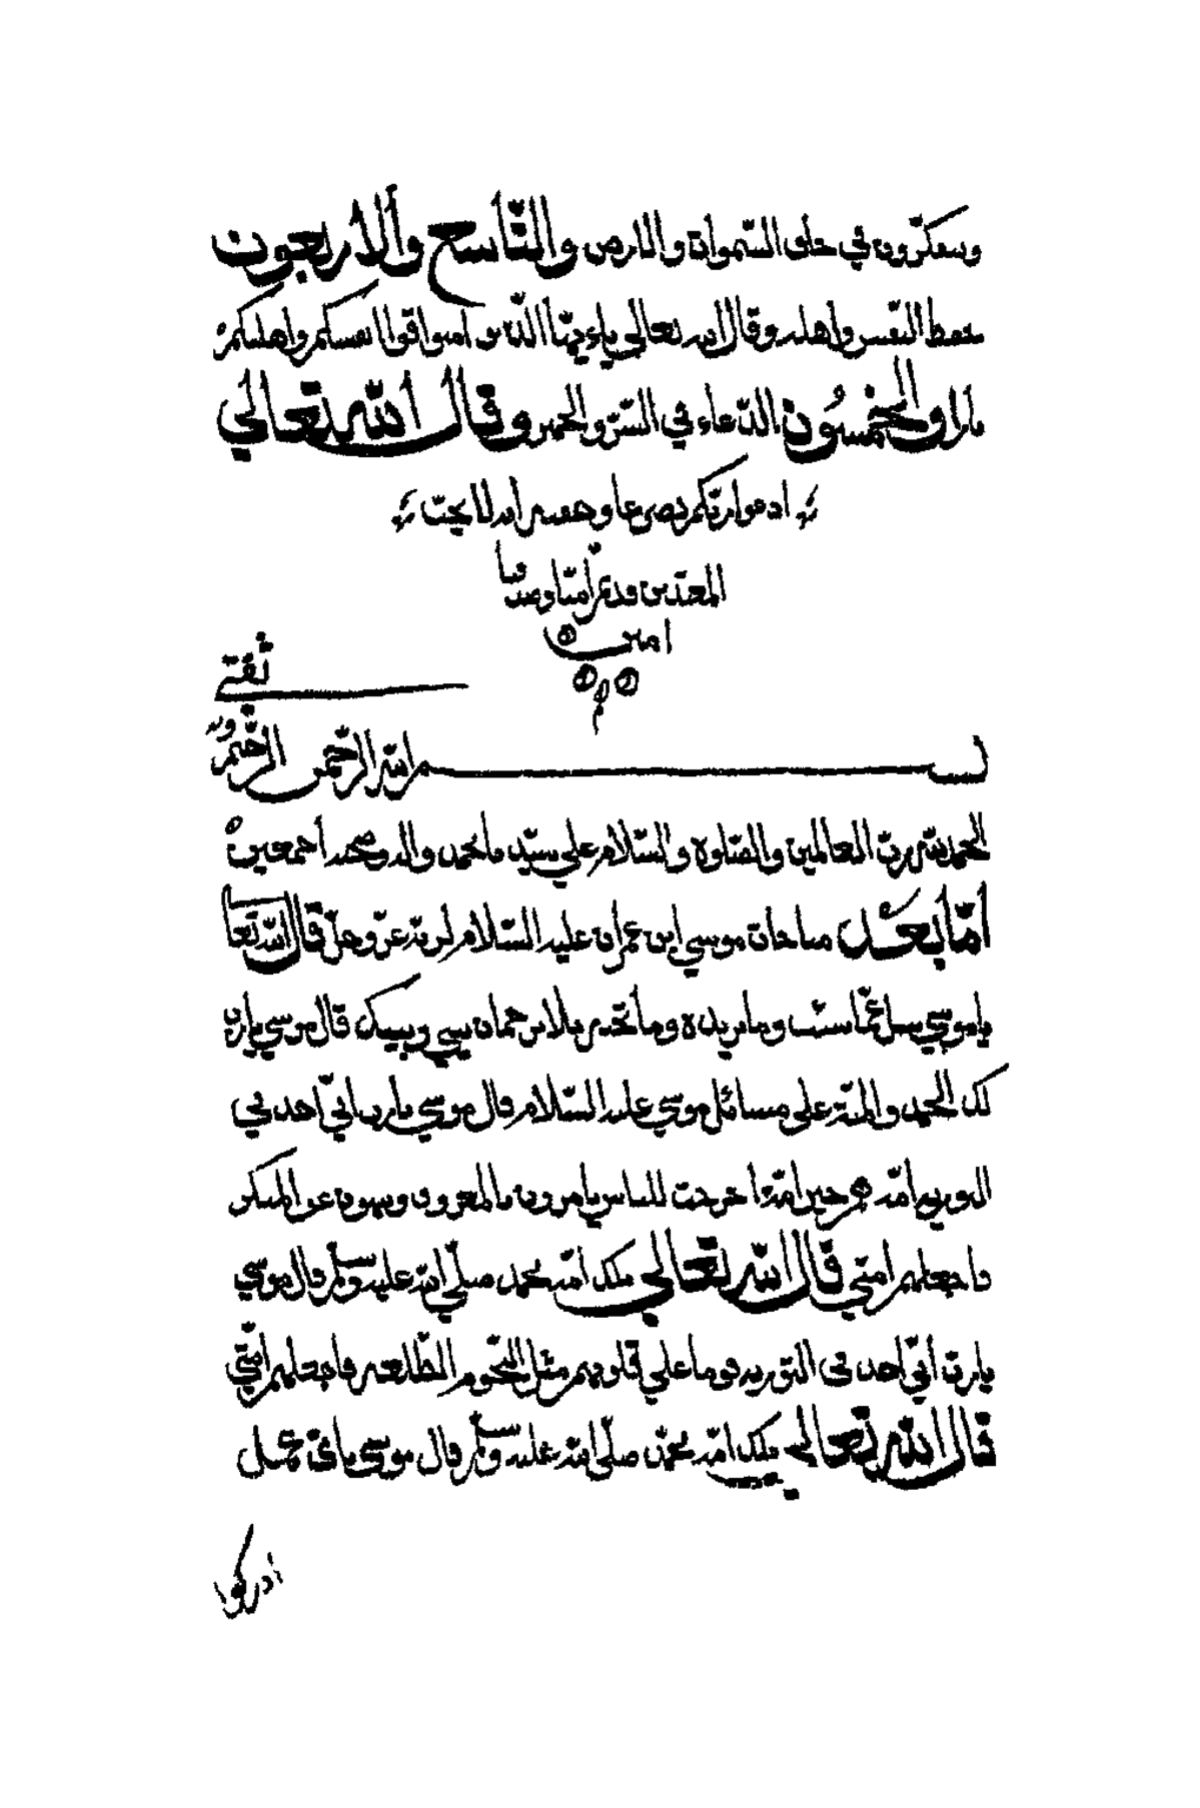 ويتفكّرون في خلق السّموات والارض والتّاسع والاربعون
حفظ النّفس واهله وقال الله تعالى ياءيّها الّذين امنوا قوا انفسكم واهليكم
نارا والخمسون الدّعاء في السّرّ والجهر وقال الله تعالي
ادعوا ربّكم تضرعا وخفيه انه لا يحبّ
المعتدين وقد تمّ امنّا وصدّقنا
امين
م
ثقتي
بسم الله الرّحمن الرّحيم وبه
الحمد لله ربّ العالمين والصّلوة والسّلام علي سيّدنا محمد واله وصحبه اجمعين
امّا بعد مناجات موسي ابن عمران عليه السّلام لربّه عزّ وجلّ قال الله تعا
يا موسي سل عمّا شئت وما تريده وما تختم بالا ترجمان بيني وبينك قال موسي يا ربّ
لك الحمد والمنّة على مسائل موسي عليه السّلام قال موسي يا رب انّي اجد في
التورية امّة خير امّة اخرجت للناس يامرون بالمعروف وينهون عن المنكر
فاجعلهم امتي قال الله تعالي تلك امّة محمد صلّي الله عليه وسلّم قال موسي
يا ربّ أنّي اجد في التوريه قوما علي قلوبهم مثل النّجوم الطّالعه فاجعلهم امّتي
قال الله تعالي تلك امّة محمّد صلّي الله عليه وسلّم قال موسي
ادركوا